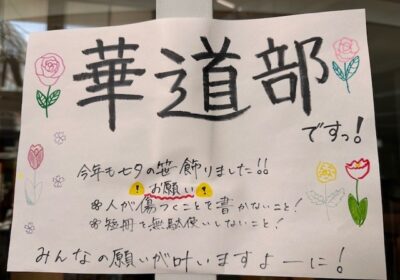 華道部
ですっ!
今年も七夕の笹飾りました!!
お願い
※人が傷つくことて書かないこと!
※短冊を無駄使いしないこと!
みんなの願いが叶いますよーに!